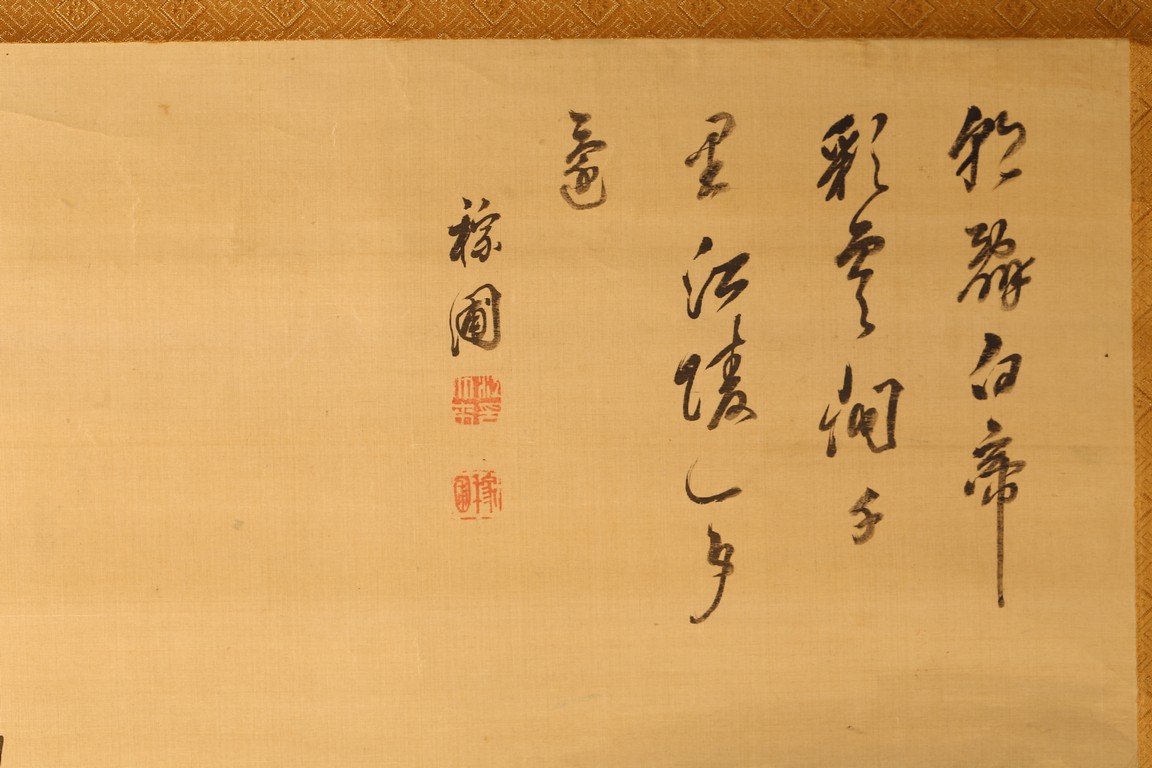 朝辭白帝
彩雲間千
里江陵一日
還
稼圃